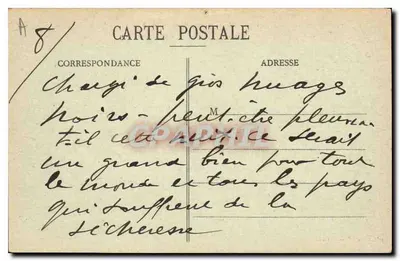 A
8/
CARTE POSTALE
CORRESPONDANCE
ADRESSE
Chargé de gros nuages
M
noirs - peut-être pleuvra-
t-il cette nuit, ce serait
un grand bien pour tout
le monde et tous les pays
qui souffrent de la
sécheresse